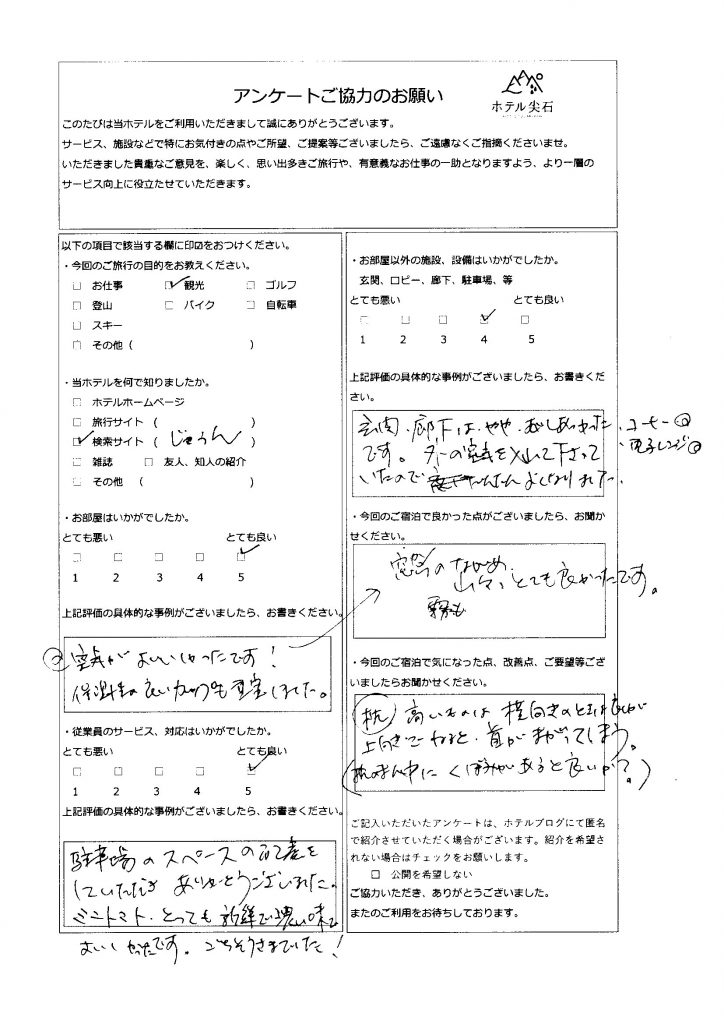 アンケートご協力のお願い
ホテル尖石
このたびは当ホテルをご利用いただきまして誠にありがとうございます。
サービス、施設などで特にお気付きの点やご所望、ご提案等ございましたら、ご遠慮なくご指摘くださいませ。
いただきました貴重なご意見を、楽しく、思い出多きご旅行や、有意義なお仕事の一助となりますよう、より一層の
サービス向上に役立たせていただきます。
以下の項目で該当する欄に印☑をおつけください。
・今回のご旅行の目的をお教えください。
□ お仕事 ☑ 観光 □ ゴルフ
□ 登山 □ バイク □ 自転車
□ スキー
□ その他 ( )
・当ホテルを何で知りましたか。
□ ホテルホームページ
□ 旅行サイト ( )
☑ 検索サイト ( じゃらん )
□ 雑誌 □ 友人、知人の紹介
□ その他 ( )
・お部屋はいかがでしたか。
とても悪い とても良い
□ □ □ □ ☑
1 2 3 4 5
上記評価の具体的な事例がございましたら、お書きください。
空気がおいしかったです!
保温性の良いカップも重宝しました。
・従業員のサービス、対応はいかがでしたか。
とても悪い とても良い
□ □ □ □ ☑
1 2 3 4 5
上記評価の具体的な事例がございましたら、お書きください。
駐車場のスペースの配慮を
していただき ありがとうございました。
ミニトマト、とっても新鮮で濃い味で
おいしかったです。ごちそうさまでした!
・お部屋以外の施設、設備はいかがでしたか。
玄関、ロビー、廊下、駐車場、等
とても悪い とても良い
□ □ □ ☑ □
1 2 3 4 5
上記評価の具体的な事例がございましたら、お書きくだ
さい。
玄関、廊下は、やや、むしあつかった
です。外の空気を入れて下さって
いたので だんだんよくなりました。
・コーヒー◎
・電子レンジ◎
・今回のご宿泊で良かった点がございましたら、お聞か
せください。
窓のながめ
山々、とても良かったです。
霧も
・今回のご宿泊で気になった点、改善点、ご要望等ござ
いましたらお聞かせください。
枕 高いものは 横向きのときは良いが
上向きでねると、首がまがってしまう。
(枕のまん中にくぼみがあると良いかも?)
ご記入いただいたアンケートは、ホテルブログにて匿名
で紹介させていただく場合がございます。紹介を希望さ
れない場合はチェックをお願いします。
□ 公開を希望しない
ご協力いただき、ありがとうございました。
またのご利用をお待ちしております。